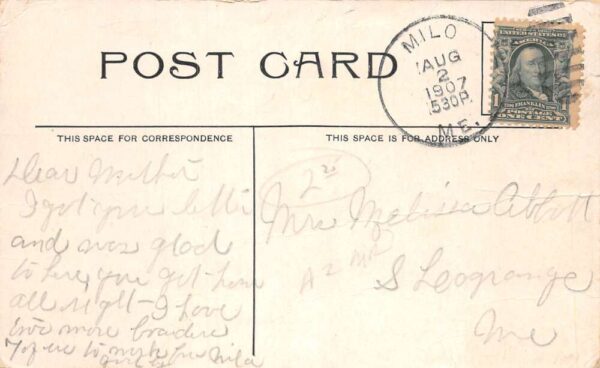 POST CARD
MILO
AUG
2
1907
530P.
ME.
UNITED STATES OF
AMERICA
1706 FRANKLIN 1790
1 1
POSTAGE
ONE CENT
THIS SPACE FOR CORRESPONDENCE
THIS SPACE IS FOR ADDRESS ONLY
Dear Mother
I got your letter
and was glad
to here you got home
all right - I have
two more
7 of us to
Mrs Melissa Abbott
S Leogrange
Me